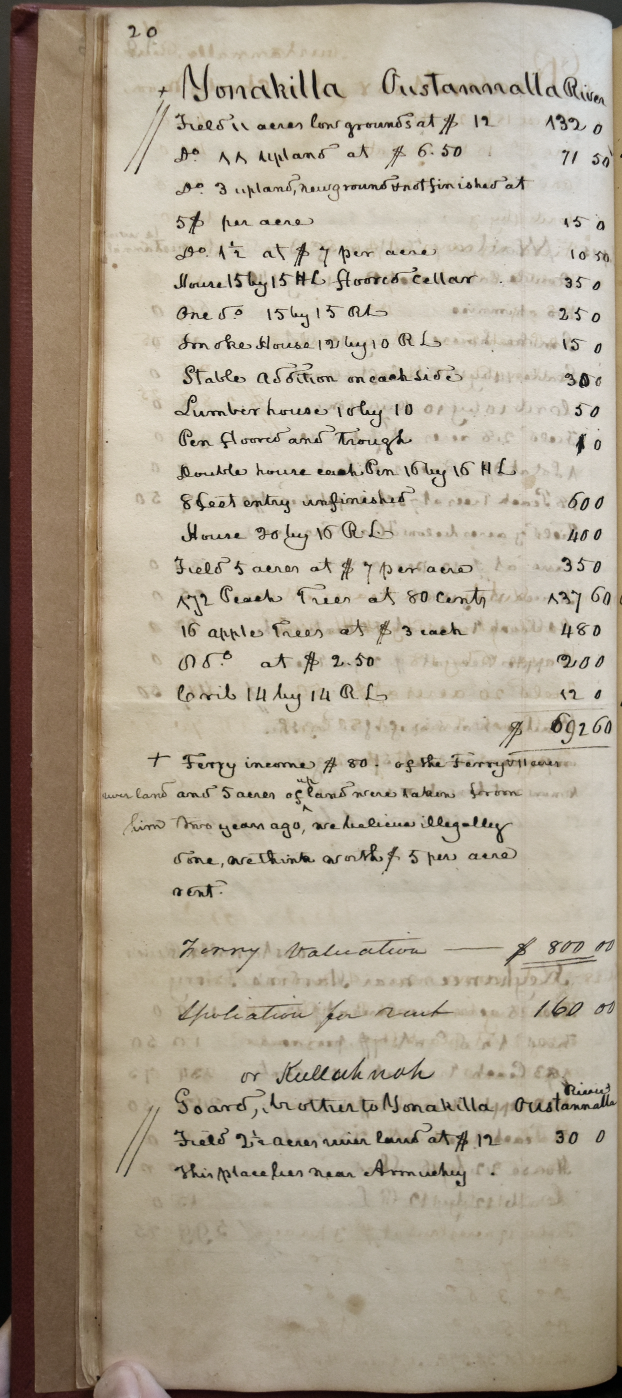 20
+ Yonakilla Oustannalla River
Field 11 acres low grounds at $ 12 132 0
Do 11 upland at $ 6.50 71 50
Do 3 upland, newground & not finished at
5$ per acre 15 0
Do 1½ at $ 7 per acre 10 50
House 15 by 15 HL floored cellar 35 0
One do 15 by 15 RL 25 0
Smoke House 12 by 10 R L 15 0
Stable addition on each side 30 0
Lumber house 10 by 10 5 0
Pen floored and trough 1 0
Double house each Pen 16 by 16 H L
8 feet entry unfinished 60 0
House 20 by 16 R L 40 0
Field 5 acres at $ 7 per acre 35 0
172 Peach Trees at 80 cents 137 60
16 apple Trees at $ 3 each 48 0
8 do at $ 2.50 20 0
Crib 14 by 14 R L 12 0
$ 692 60
+ Ferry income $ 80. of the Ferry & 11 acres
river land and 5 acres of up land were taken from
him two years ago, we believe illegally
done, we think worth $ 5 per acre
rent.
Ferry Valuation — $ 800 00
Spoliation for rent 160 00
or Kullahnah
Goard, brother to Yonakilla Oustannalla River
Field 2½ acres river land at $ 12 30 0
This place lies near Armuchey.